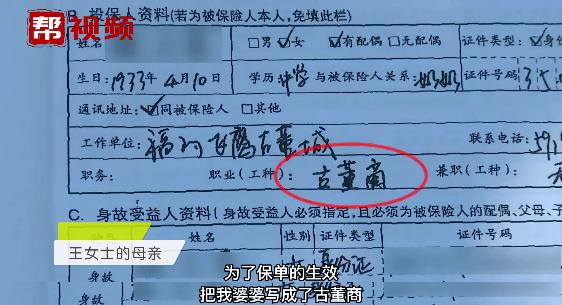 帮视频
B. 投保人资料(若为被保险人本人，免填此栏)
姓名 □男 ☑女 ☑有配偶 □无配偶 证件类型： ☑身份
生日：1933年4月10日 学历 中学 与被保险人关系：奶奶 证件号码 35
通讯地址： ☑同被保险人 □其他
工作单位： 福州 古董城 联系电话：591
职务： 职业(工种)： 古董商 兼职(工种)：
C. 身故受益人资料(身故受益人必须指定，且必须为被保险人的配偶、父母、子
姓名 性别 证件类型 证件号码
身故 身份证
身故
王女士的母亲
为了保单的生效
把我婆婆写成了古董商